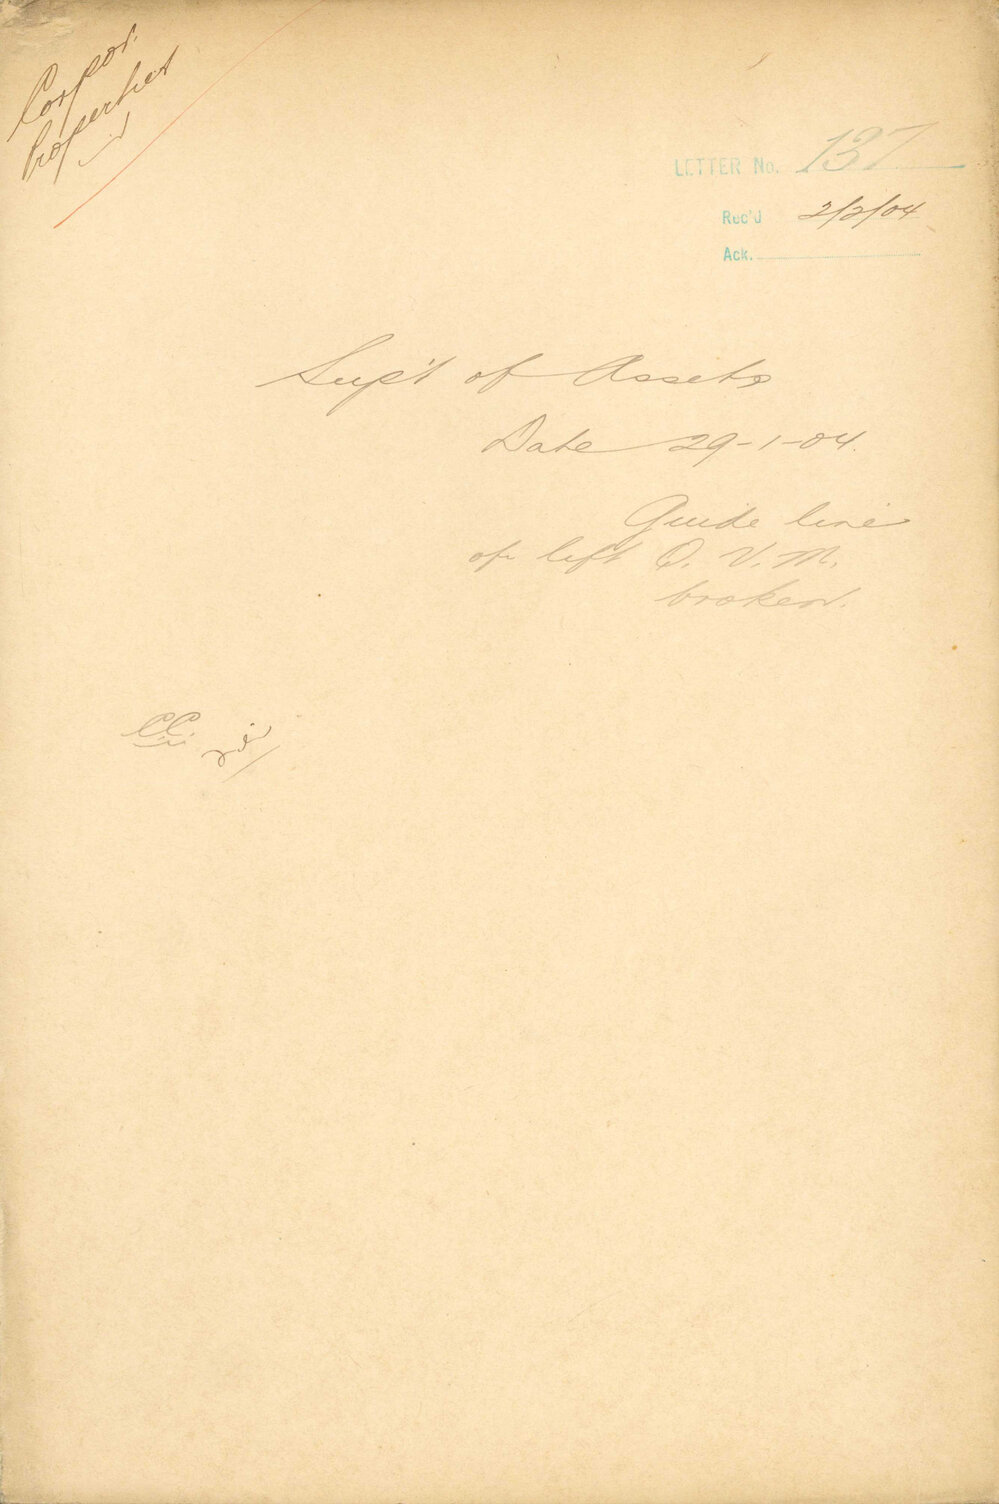 Corpor.
Properties
LETTER No. 137
Rec'd 2/2/04
Ack.
Sup't of Assets
Date 29-1-04.
Guide line
of lift Q. V. M.
broken.
CC.